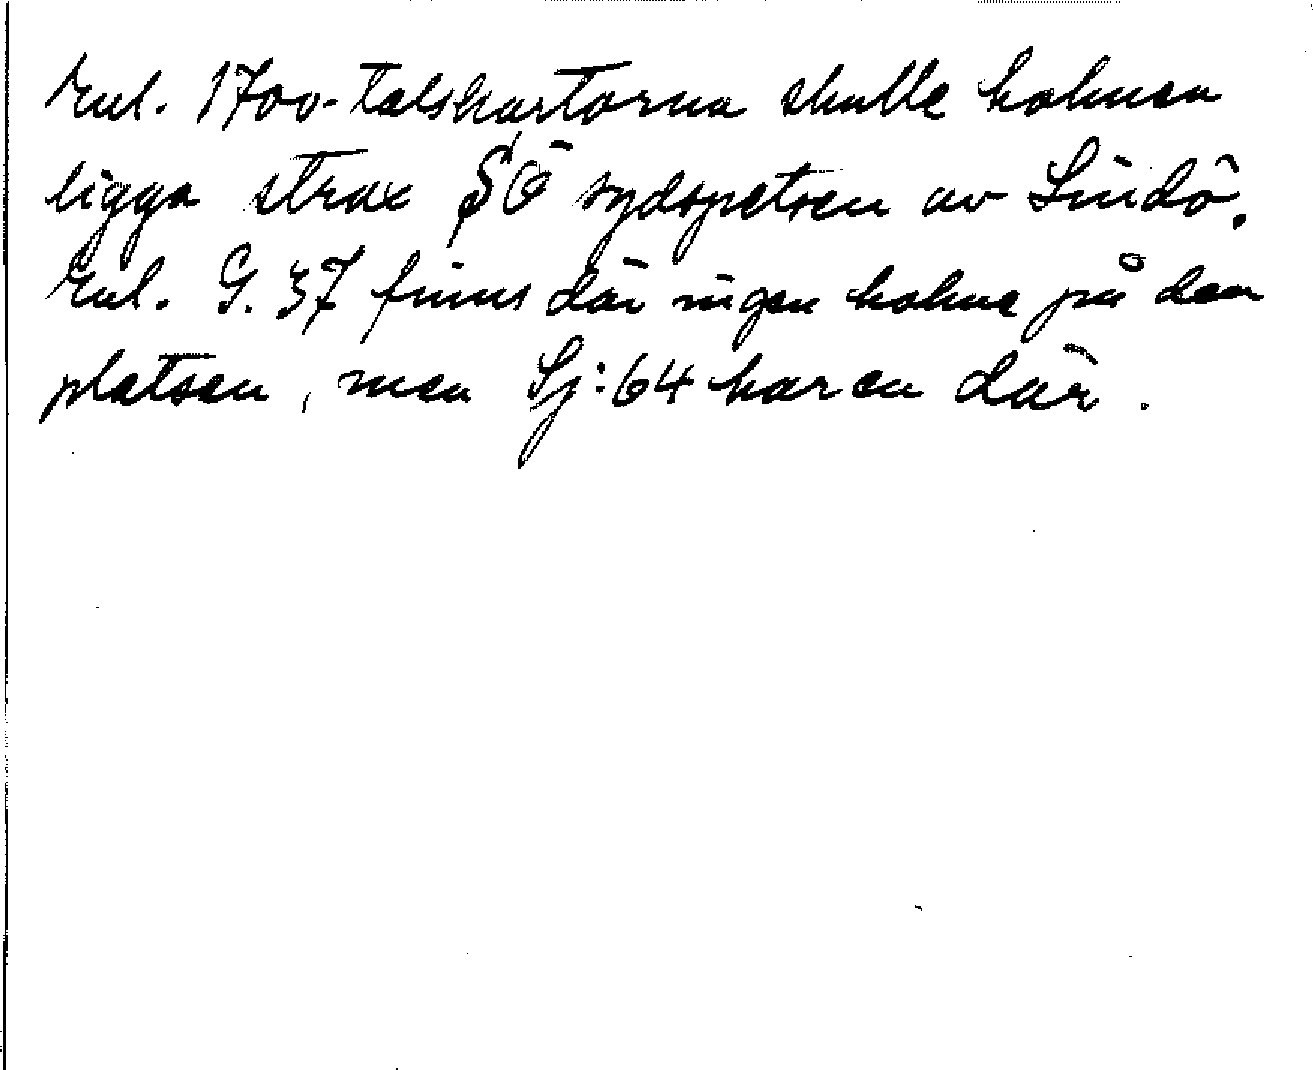 Enl. 1700-talskartorna skulle holmen
ligga strax SÖ sydspetsen av Lindö.
Enl. G. 37 finns där ingen holme på den
platsen, men Sj:64 har en där.